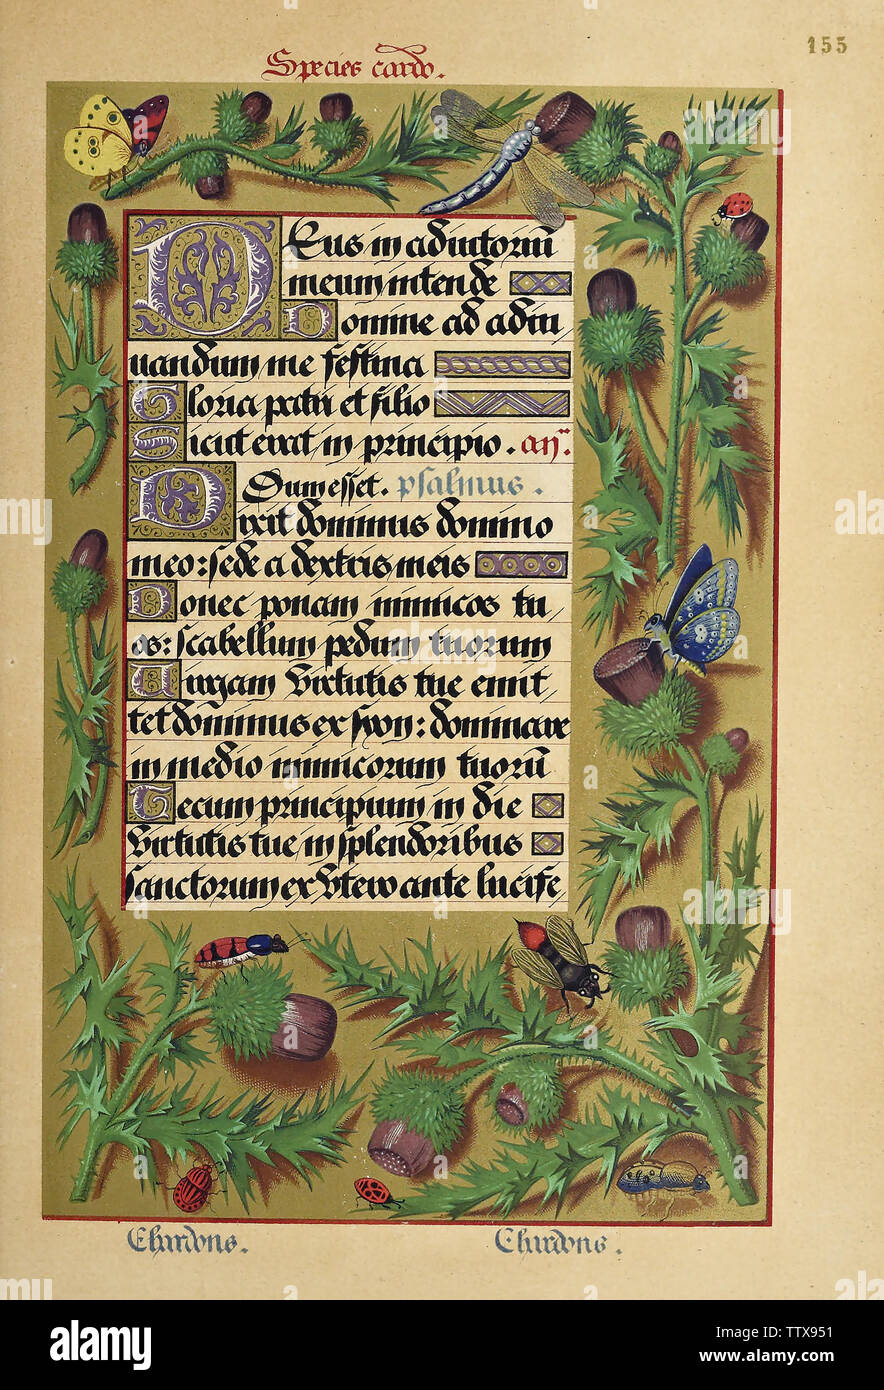 155
Species cardo.
DEus in adiutoriū
meum intende
Domine ad adiu/
uandum me festina
Gloria patri et filio
Sicut erat in principio. an̄.
Dum esset. psalmus.
Dixit dominus domino
meo: sede a dextris meis
Donec ponam inimicos tu/
os: scabellum pedum tuorum
Uirgam virtutis tue emit/
tet dominus ex syon: dominare
in medio inimicorum tuorū
Tecum principium in die
virtutis tue in splendoribus
sanctorum ex vtero ante lucife
Chardons. Chardons.
alamy
Image ID: TTX951
www.alamy.com